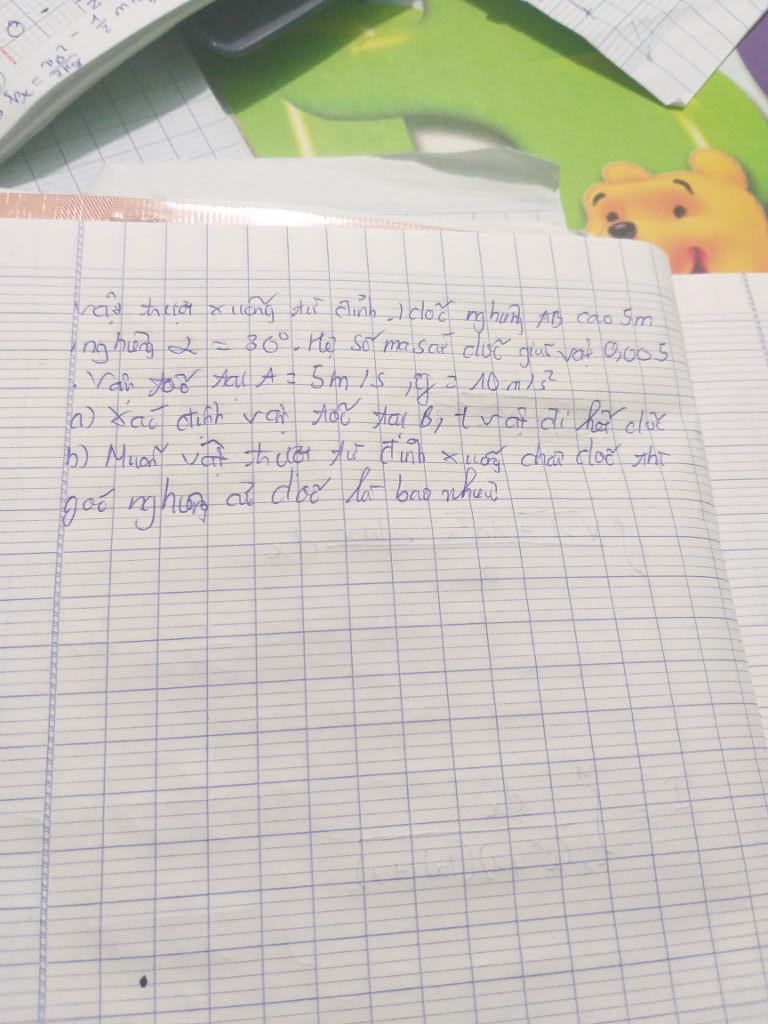 vật trượt xuống từ đỉnh 1 dốc nghiêng AB cao 5m
nghiêng α = 30°. Hệ số ma sát dốc giữa vật 0,005
. Vận tốc tại A = 5m/s, g = 10m/s²
a) Xác định vận tốc tại B, t vật đi hết dốc
b) Muốn vật trượt từ đỉnh xuống chân dốc thì
góc nghiêng dốc là bao nhiêu